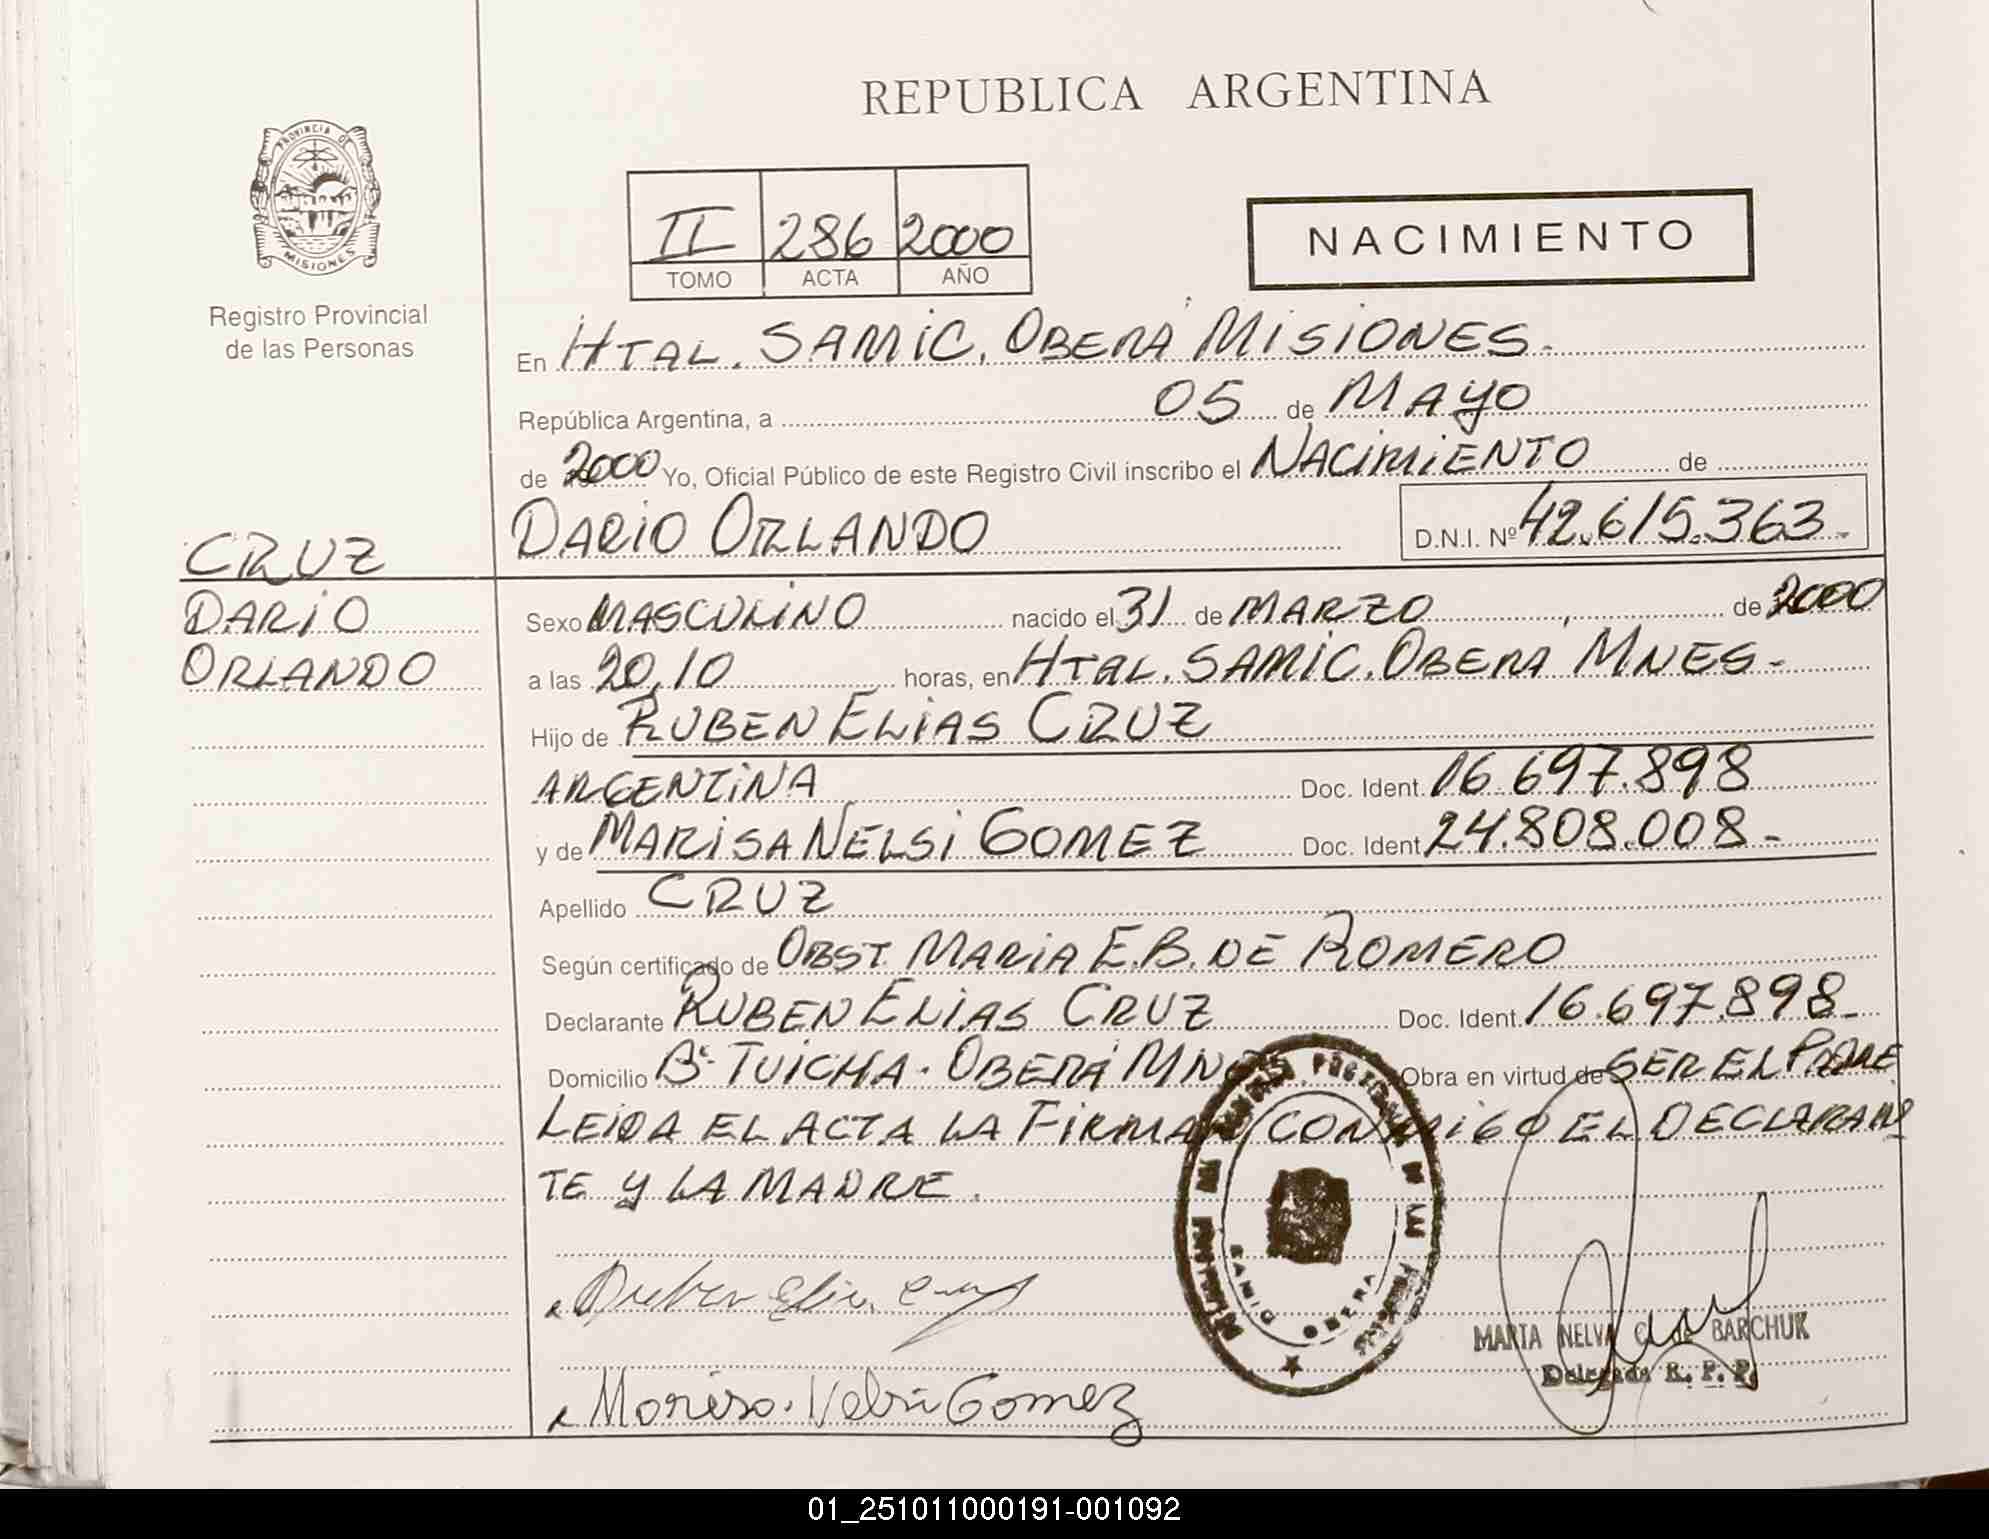 REPUBLICA ARGENTINA
PROVINCIA DE
MISIONES
Registro Provincial
de las Personas
II 286 2000
TOMO ACTA AÑO
NACIMIENTO
En HTAL. SAMIC. OBERÁ MISIONES.
República Argentina, a 05 de MAYO
de 2000 Yo, Oficial Público de este Registro Civil inscribo el NACIMIENTO de
DARIO ORLANDO D.N.I. Nº 42.615.363.-
CRUZ
DARIO
ORLANDO
Sexo MASCULINO nacido el 31 de MARZO de 2000
a las 20,10 horas, en HTAL. SAMIC. OBERA MNES-
Hijo de RUBEN ELIAS CRUZ
ARGENTINA Doc. Ident. 16.697.898
y de MARISA NELSI GOMEZ Doc. Ident. 24.808.008-
Apellido CRUZ
Según certificado de OBST. MARIA E.B. DE ROMERO
Declarante RUBEN ELIAS CRUZ Doc. Ident. 16.697.898-
Domicilio Bº TUICHA. OBERÁ MNES Obra en virtud de SER EL PADRE
LEIDA EL ACTA LA FIRMAN CONMIGO EL DECLARAN
TE Y LA MADRE.
Ruben Elias Cruz
OBERA
MARTA NELVA C. de BARCHUK
Delegada R. P. P.
Marisa. Nelsi Gomez
01_251011000191-001092